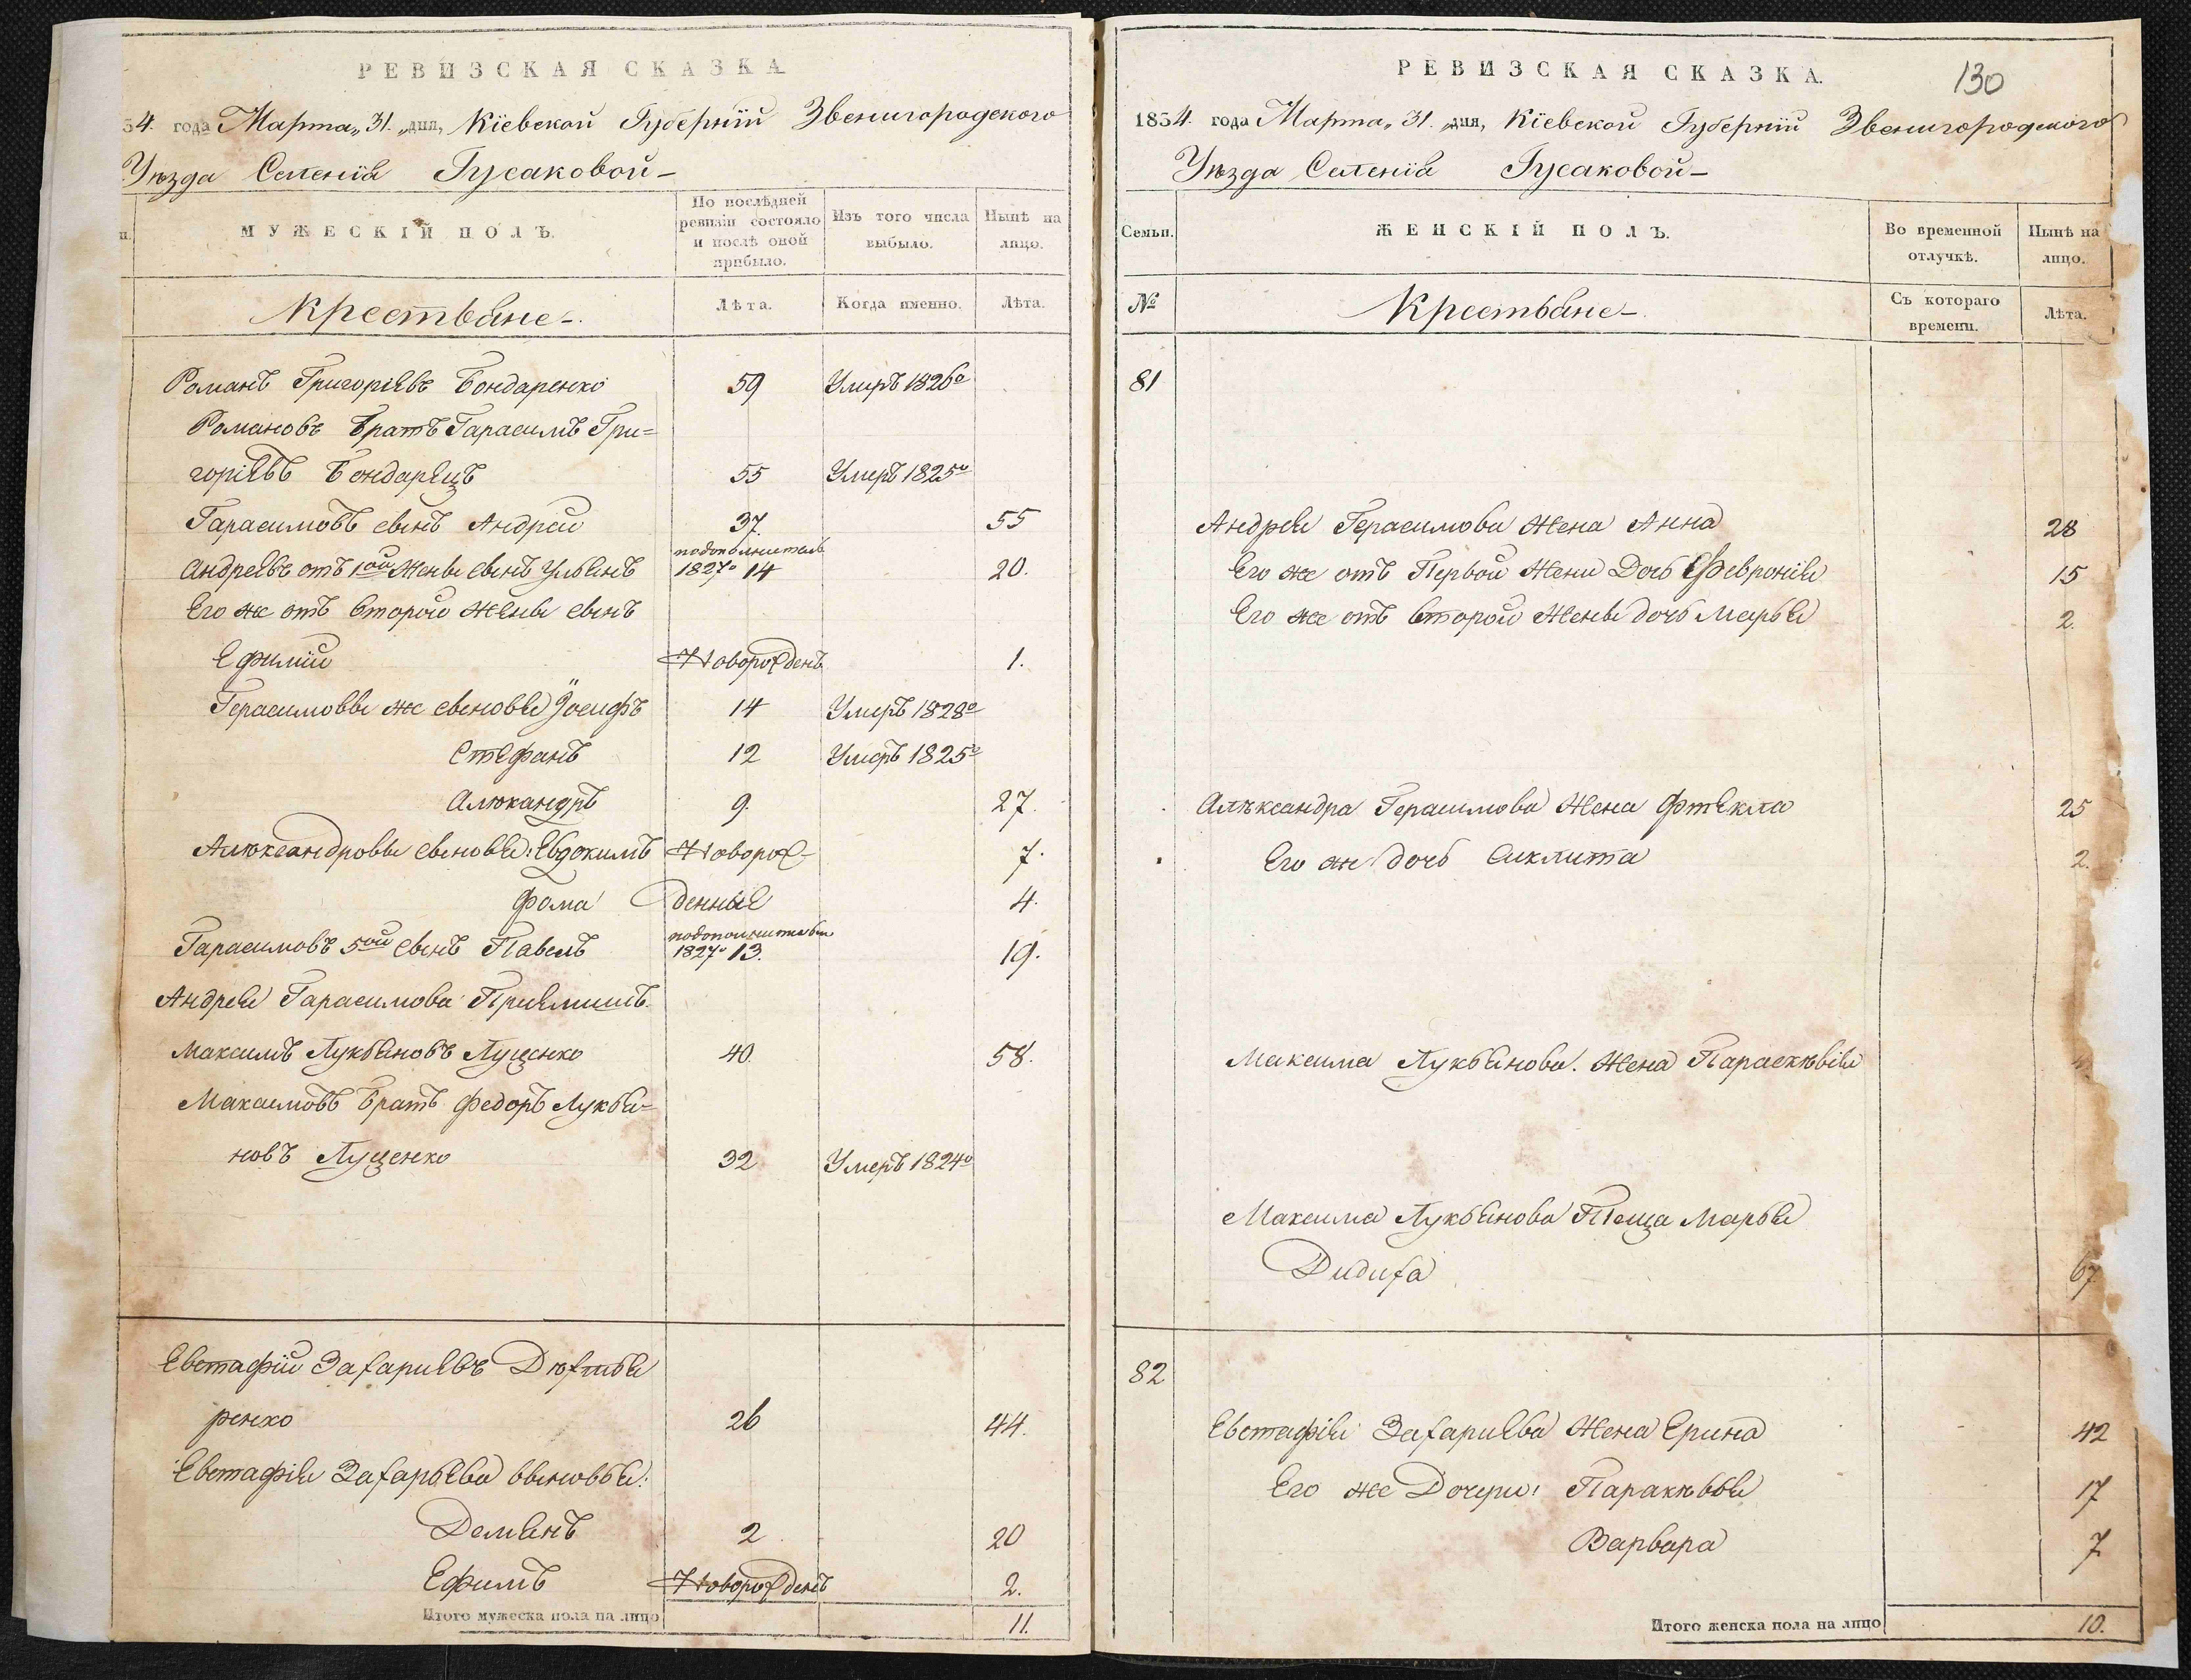 РЕВИЗСКАЯ СКАЗКА
34. года Марта „31. „дня, Кіевской Губерніи Звенигородского
Уѣзда Селенія Гусаковой
МУЖЕСКІЙ ПОЛЪ.
По послѣдней ревизіи состояло и послѣ оной прибыло.
Изъ того числа выбыло.
Нынѣ на лицо.
Крестьяне
Лѣта.
Когда именно.
Лѣта.
Романъ Григоріевъ Бондаренко 59 Умиръ 1826º
Романовъ братъ Гарасимъ Гри=
горіевъ Бондарецъ 55 Умеръ 1825º
Гарасимовъ сынъ Андрей 37. 55
подополнитель
Андреевъ отъ 1ой жены сынъ Ульянъ 1827º 14 20.
Его же отъ второй жены сынъ
Ефимій Новорожденъ 1.
Герасимовы же сыновья Іосифъ 14 Умеръ 1828º
Стефанъ 12 Умеръ 1825º
9. 27.
сыновья: Евдокимъ Новорож- 7.
Фома денные 4.
Гарасимовъ 5ой сынъ Павелъ 1827º 13. 19.
Андрея Гарасимова
Максимъ Лукьяновъ Луценко 40. 58.
Максимовъ братъ Федоръ Лукья=
новъ Луценко 32 Умеръ 1824º
Евстафій Захариевъ
ренко 26 44.
Евстафія Захарьева сыновья:
Демянъ 2 20
Ефимъ Новорожденъ 2.
Итого мужеска пола на лицо 11.
РЕВИЗСКАЯ СКАЗКА.
130
1834. года Марта „31. „дня, Кіевской Губерніи Звенигородского
Уѣзда Селенія Гусаковой
Семьи.
ЖЕНСКІЙ ПОЛЪ.
Во временной отлучкѣ.
Нынѣ на лицо.
№
Крестьяне
Съ котораго времени.
Лѣта.
81
Андрея Герасимова жена Анна 28
Его же отъ Первой жени Дочь Февронія 15
Его же отъ второй жены дочь Марья 2.
Алѣксандра Герасимова жена Фтекла 25
Его же дочь Сиклита 2.
Максима Лукьянова. жена Параскѣвія
Максима Лукьянова Теща Марья
67
82
Евстафія Захариева жена Ерина 42
Его же Дочери: 17
Варвара 7
Итого женска пола на лицо 10.